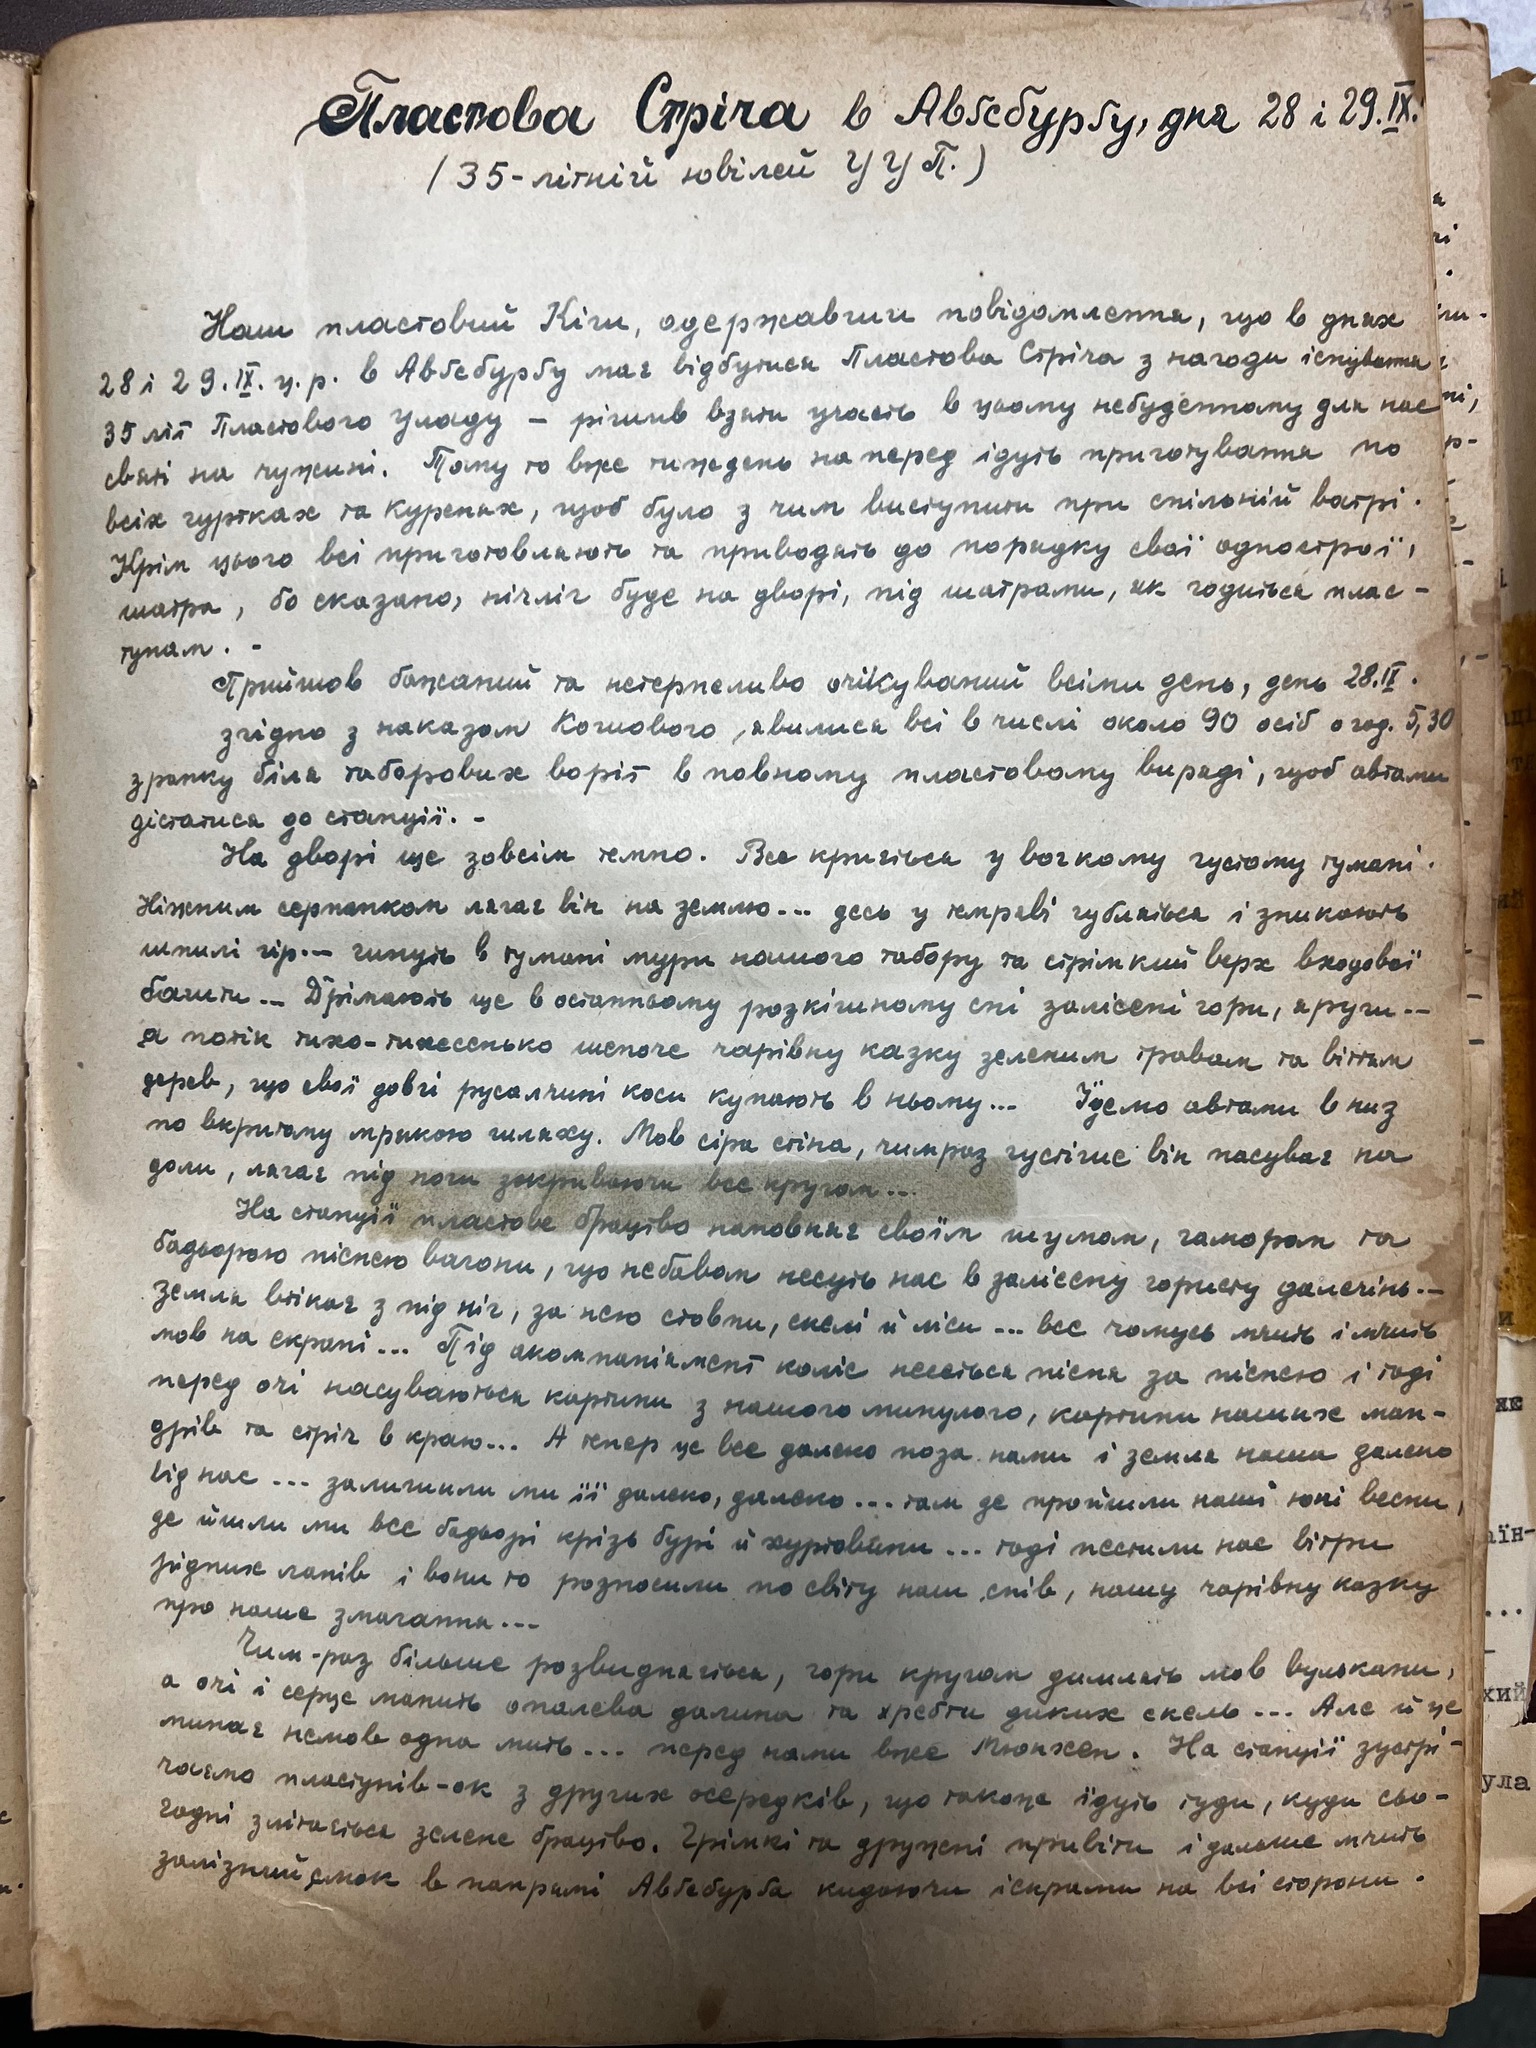 Пластова Стріча в Авґсбурґу, дня 28 і 29.IX.
(35-літній ювілей УУП.)
Наш пластовий Кіш, одержавши повідомлення, що в днях
28 і 29.IX. ц.р. в Авґсбурґу має відбутися Пластова Стріча з нагоди існування
35 літ Пластового Уладу – рішив взяти участь в цьому небуденному для нас
святі на чужині. Тому то вже тиждень наперед ідуть приготування по
всіх гуртках та куренях, щоб було з чим виступити при спільній ватрі.
Крім цього всі приготовляють та приводять до порядку свої однострої,
шатра, бо сказано, нічліг буде на дворі, під шатрами, як годиться плас-
тунам. -
Прийшов бажаний та нетерпеливо очікуваний всіми день, день 28.IX.
згідно з наказом Кошового, явилися всі в числі около 90 осіб о год. 5,30
зранку біля таборових воріт в повному пластовому виряді, щоб автами
дістатися до станції. -
На дворі ще зовсім темно. Все криється у вогкому густому тумані.
Ніжним серпанком лягає він на землю... десь у темряві губляться і зникають
шпилі гір... гинуть в тумані мури нашого табору та стрімкий верх входової
башти... Дрімають ще в останньому розкішному сні заліснені гори, яруги...
а потік тихо-тихесенько шепоче чарівну казку зеленим травам та віттям
дерев, що свої довгі русалчині коси купають в ньому... Їдемо автами в низ
по вкритому мрякою шляху. Мов сіра стіна, чимраз густіше він насуває на
доли, лягає під ноги закриваючи все кругом...
На станції пластове брацтво наповняє своїм шумом, гамором та
бадьорою піснею вагони, що небавом несуть нас в заліснену гористу далечінь...
Земля втікає з під ніг, за нею стовпи, скелі й ліси... все чомусь мчить і мчить
мов на екрані... Під акомпаніямент коліс несеться пісня за піснею і тоді
перед очі насуваються картини з нашого минулого, картини наших ман-
дрів та стріч в краю... А тепер це все далеко поза нами і земля наша далеко
від нас... залишили ми її далеко, далеко... там де пройшли наші юні весни,
де йшли ми все бадьорі крізь бурі й хуртовини... тоді пестили нас вітри
рідних ланів і вони то розносили по світу наш спів, нашу чарівну казку
про наше змагання...
Чим-раз більше розвидняється, гори кругом димлять мов вулькани,
а очі і серце манить опалева далина та хребти диких скель... Але й це
минає немов одна мить... перед нами вже Мюнхен. На станції зустрі-
чаємо пластунів-ок з других осередків, що також їдуть туди, куди сьо-
годні злітається зелене брацтво. Грімкі та дружені привіти і дальше мчить
залізний смок в напрямі Авґсбурґа кидаючи іскрами на всі сторони.